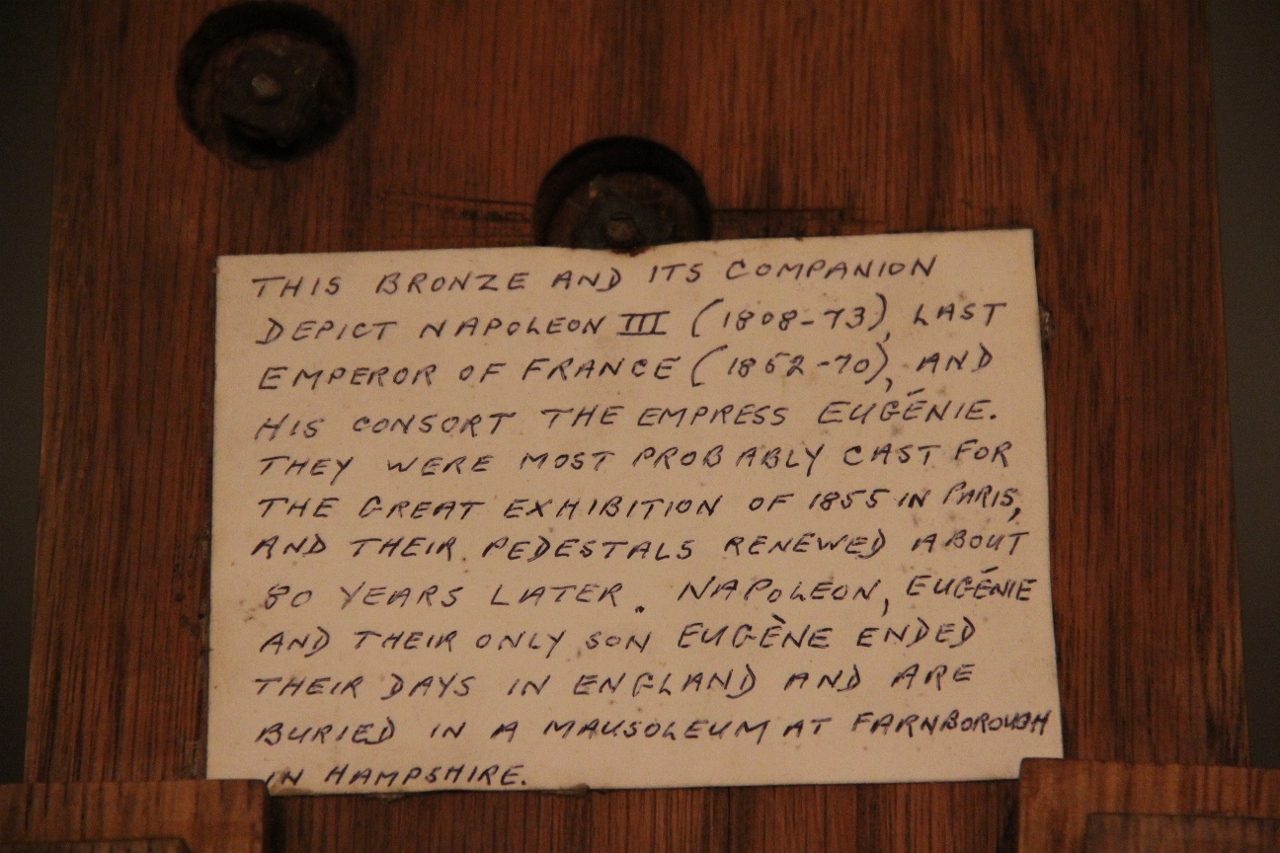 THIS BRONZE AND ITS COMPANION
DEPICT NAPOLEON III (1808-73), LAST
EMPEROR OF FRANCE (1852-70), AND
HIS CONSORT THE EMPRESS EUGÉNIE.
THEY WERE MOST PROBABLY CAST FOR
THE GREAT EXHIBITION OF 1855 IN PARIS,
AND THEIR PEDESTALS RENEWED ABOUT
80 YEARS LATER. NAPOLEON, EUGÉNIE
AND THEIR ONLY SON EUGÈNE ENDED
THEIR DAYS IN ENGLAND AND ARE
BURIED IN A MAUSOLEUM AT FARNBOROUGH
IN HAMPSHIRE.